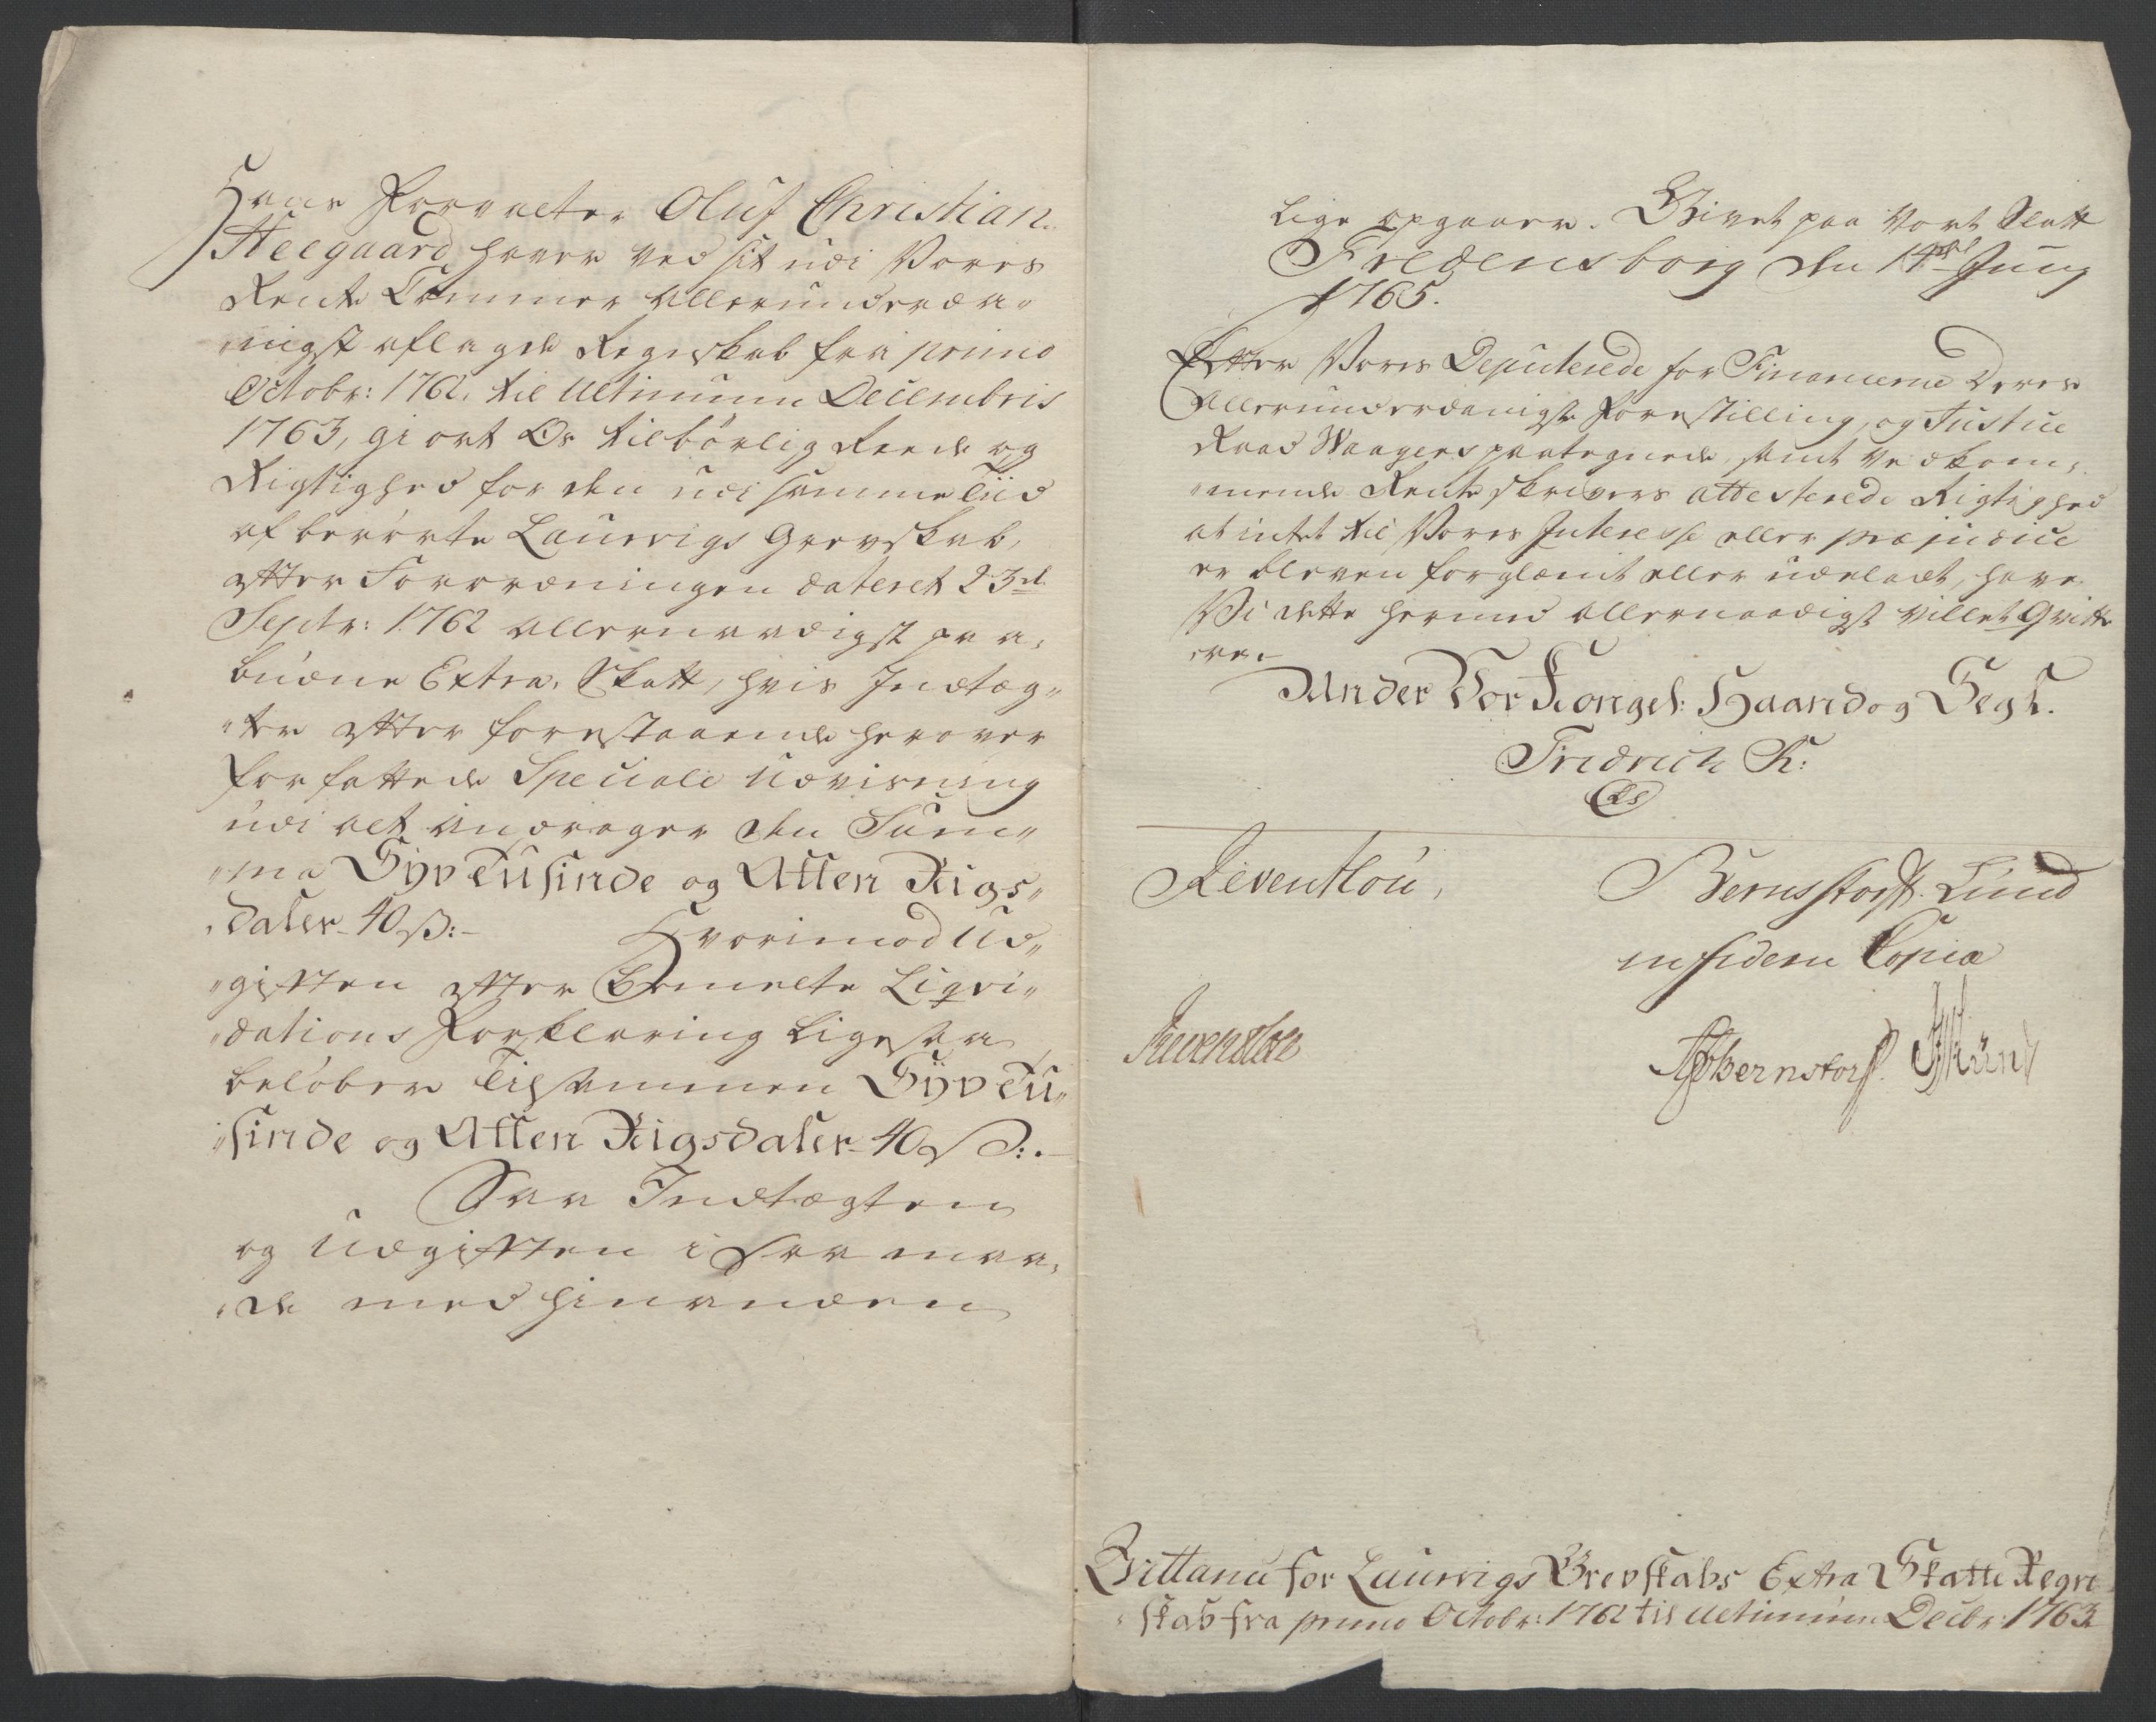 Hans Forvalter Oluf Christian
Heegaard haver ved sit udi Vores
Rente Cammer allerunderda„
„nigst aflagde Regnskab fra primo
Octobr: 1762. til ultimum Decembris
1763, giort Os tilbörlig Reede og
Rigtighed for den udi samme Tiid
af berörte Laurvigs Grevskab,
efter Forordningen dateret 23d
Septr: 1762 allernaadigst paa„
budne Extra Skatt, hvis Indtæg„
„ter efter forestaaende herover
forfattede Speciale Udvisning
udi alt andrager den Sum„
„ma Syv Tusinde og Atten Rigs„
„daler 40 ß:–
Hvorimod Ud„
„giften efter Bemelte Liqvi„
„dations Forklaring ligesaa
belöber tilsammen Syv Tu„
„sinde og Atten Rigsdaler 40 ß:.–
Saa Indtægten
og Udgiften i saa maa„
„de med hinanden
lige opgaaer. Givet paa Vort Slott
Fredensborg den 14de Juny
1765.
Efter Vores Deputerede for Financerne Deres
allerunderdanigste Forestilling, og Justice
Raad Waagers paategnede, samt vedkom„
„mende Renteskrivers attesterede Rigtighed
at intet til Vores Interesse eller præjudice
er bleven forglemt eller udeladt, have
Vi dette hermed allernaadigst villet Qvitte
„re.
Under Vor Kongel: Haand og Segl.
Fridrich R:
LS
Reventlou,
Bernsstorff. Lund
in fidem Copiæ
Reventlou
Bernstorff.
Qvittance for Laurvigs Grevskabs Extra Skatte Regn
„skab fra primo Octobr: 1762 til ultimum Decbr: 1763